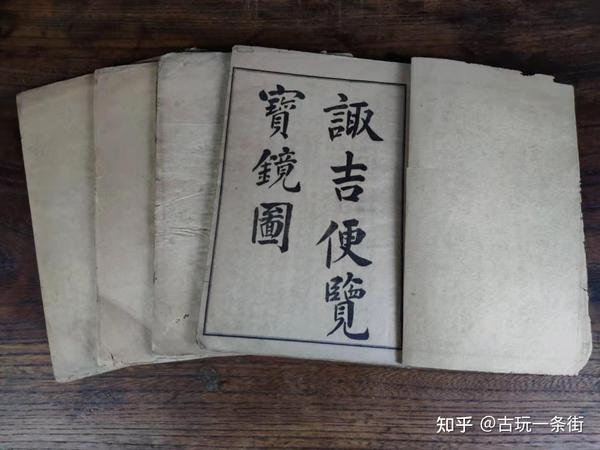 諏吉便覽
寶鏡圖
知乎 @古玩一条街